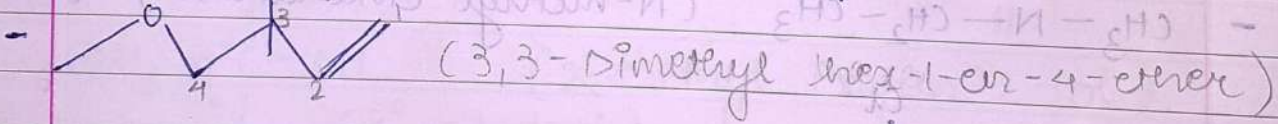 - O 3 1 (3,3-Dimethyl hex-1-en-4-ether)
4 2